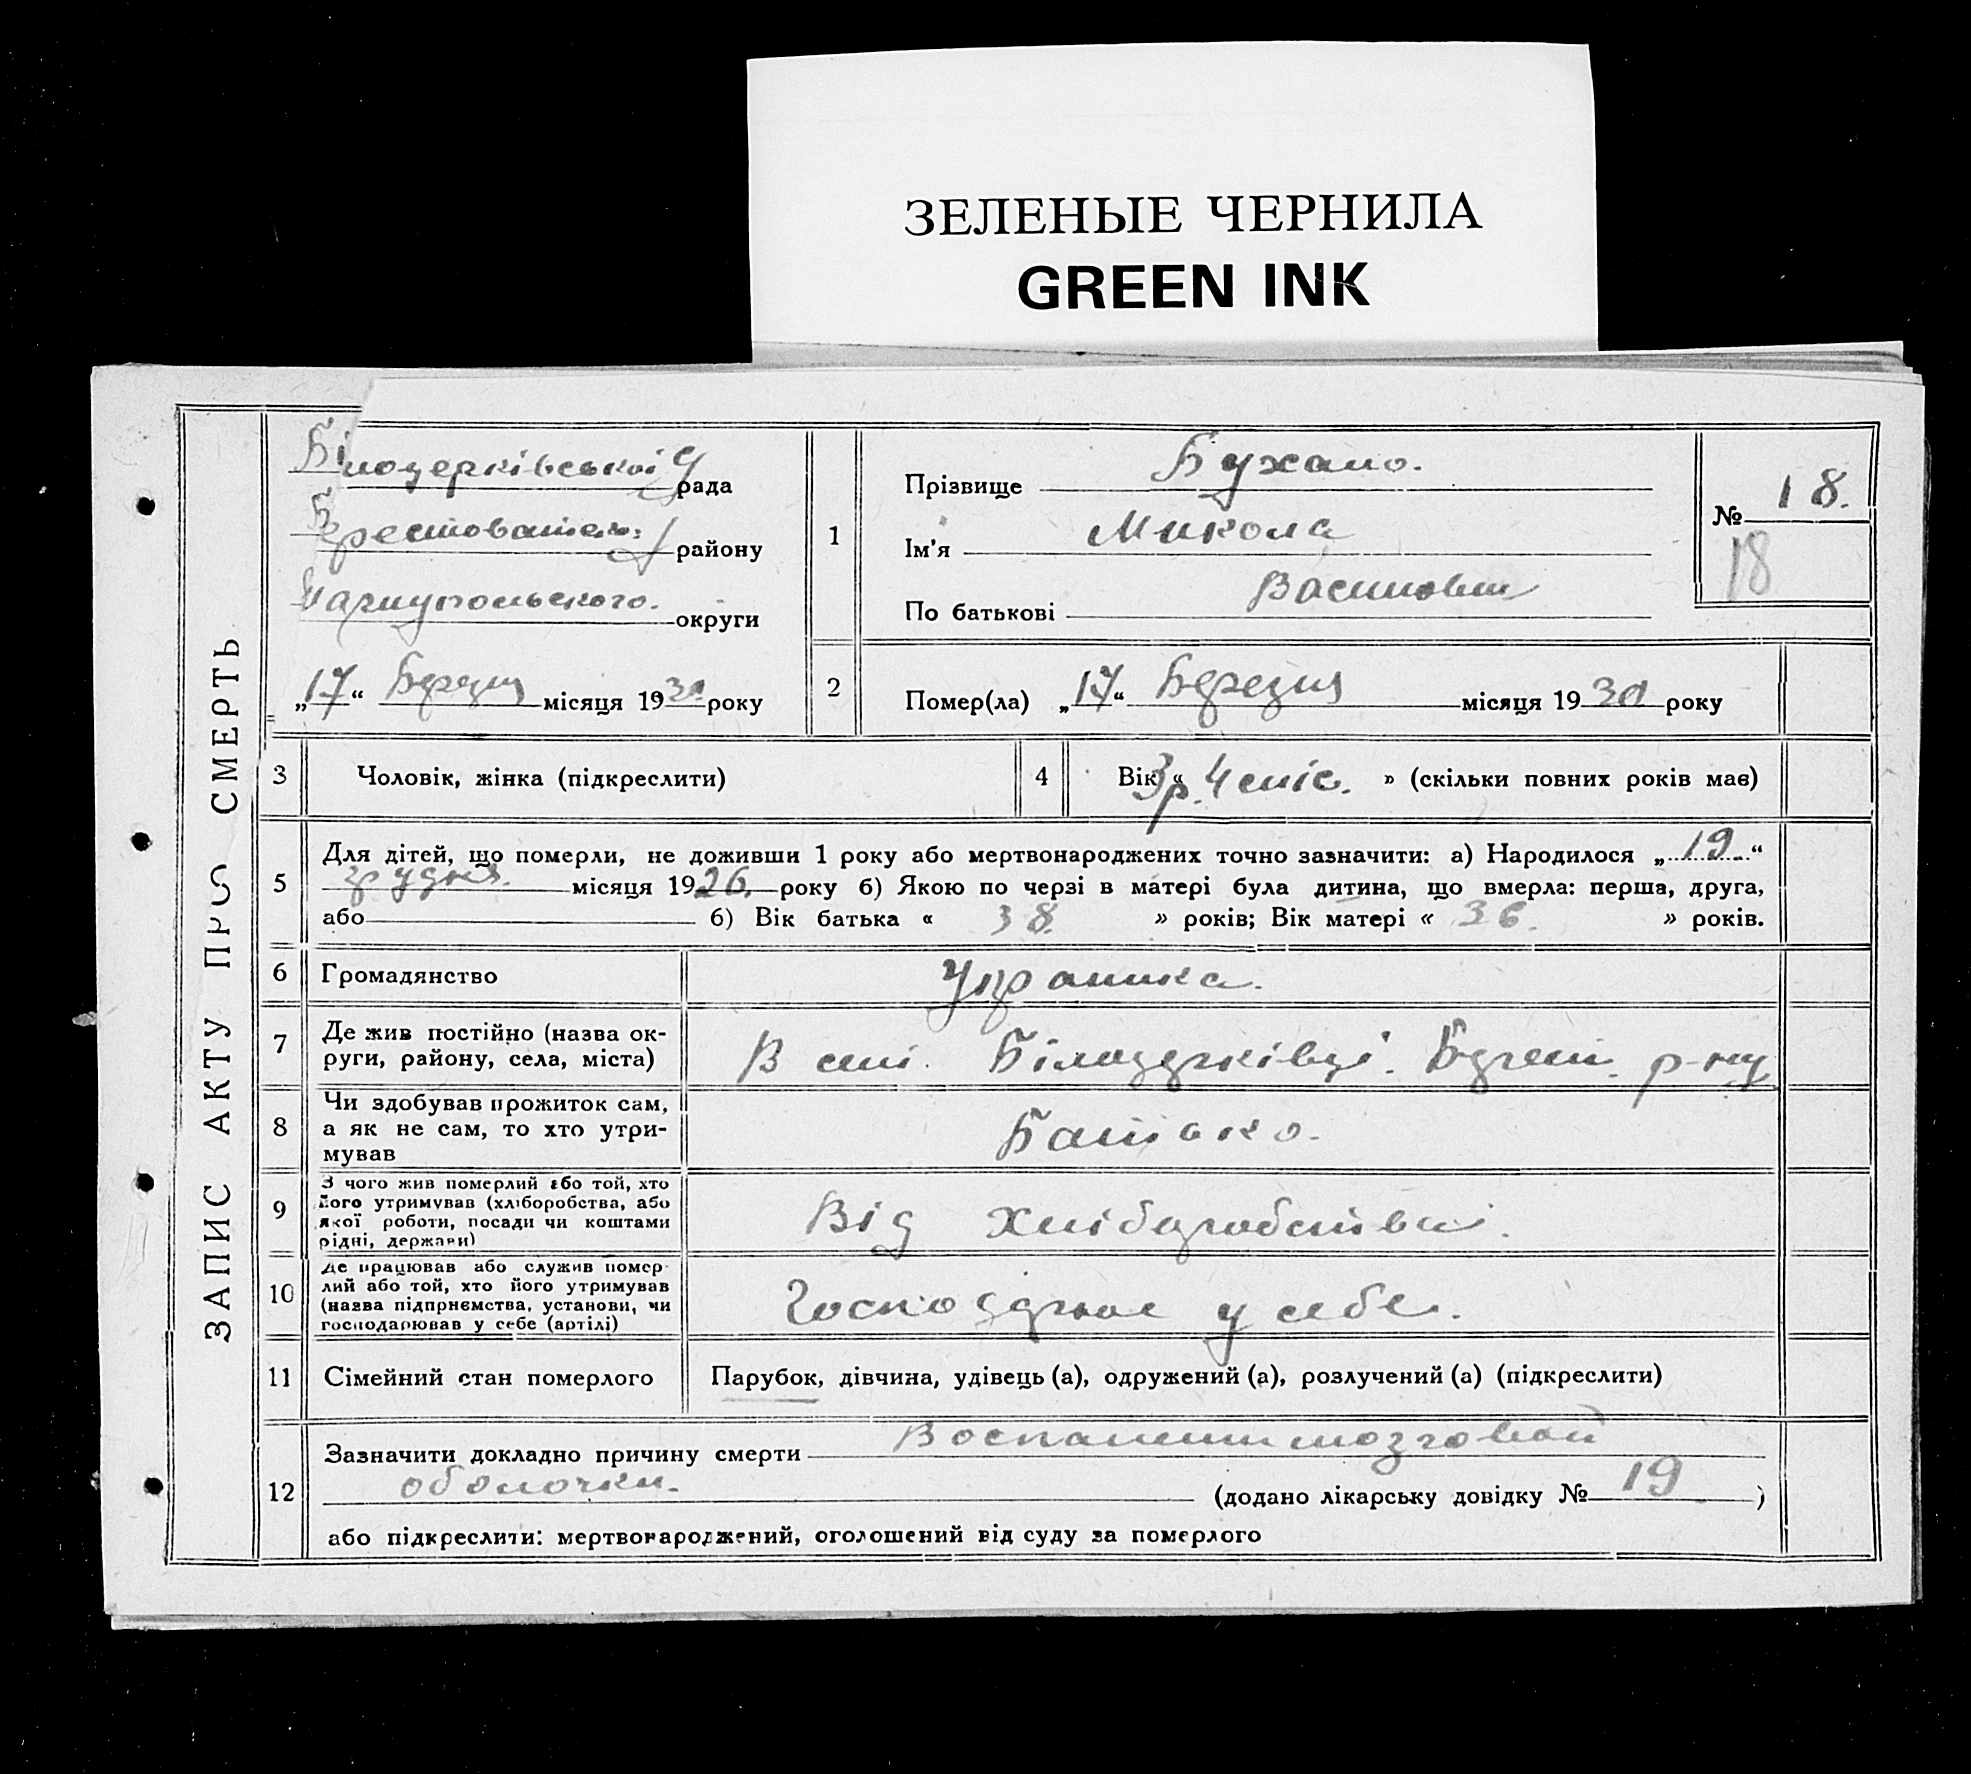 ЗЕЛЕНЫЕ ЧЕРНИЛА
GREEN INK
ЗАПИС АКТУ ПРО СМЕРТЬ
Білоцерківської рада
району
Маріупольського. округи
„17“ Березня місяця 1930 року
1
Прізвище Бухало.
Ім'я Микола
По батькові Василович
№ 18.
18
2
Помер(ла) „17“ Березня місяця 1930 року
3
Чоловік, жінка (підкреслити)
4
Вік „ 3 р. 4 міс. » (скільки повних років має)
5
Для дітей, що померли, не доживши 1 року або мертвонароджених точно зазначити: а) Народилося „19“
грудня. місяця 1926. року б) Якою по черзі в матері була дитина, що вмерла: перша, друга,
або б) Вік батька « 38. » років; Вік матері « 36. » років.
6
Громадянство
7
Де жив постійно (назва ок-
руги, району, села, міста)
В селі. Білоцерківці. р-ну
8
Чи здобував прожиток сам,
а як не сам, то хто утри-
мував
Батько.
9
З чого жив померлий або той, хто
його утримував (хліборобства, або
якої роботи, посади чи коштами
рідні, держави)
Від хліборобства.
10
Де працював або служив помер-
лий або той, хто його утримував
(назва підприємства, установи, чи
господарював у себе (артілі)
у себе.
11
Сімейний стан померлого
Парубок, дівчина, удівець (а), одружений (а), розлучений (а) (підкреслити)
12
Зазначити докладно причину смерти Воспалении мозговой
оболочки. (додано лікарську довідку № 19 )
або підкреслити: мертвонароджений, оголошений від суду за померлого